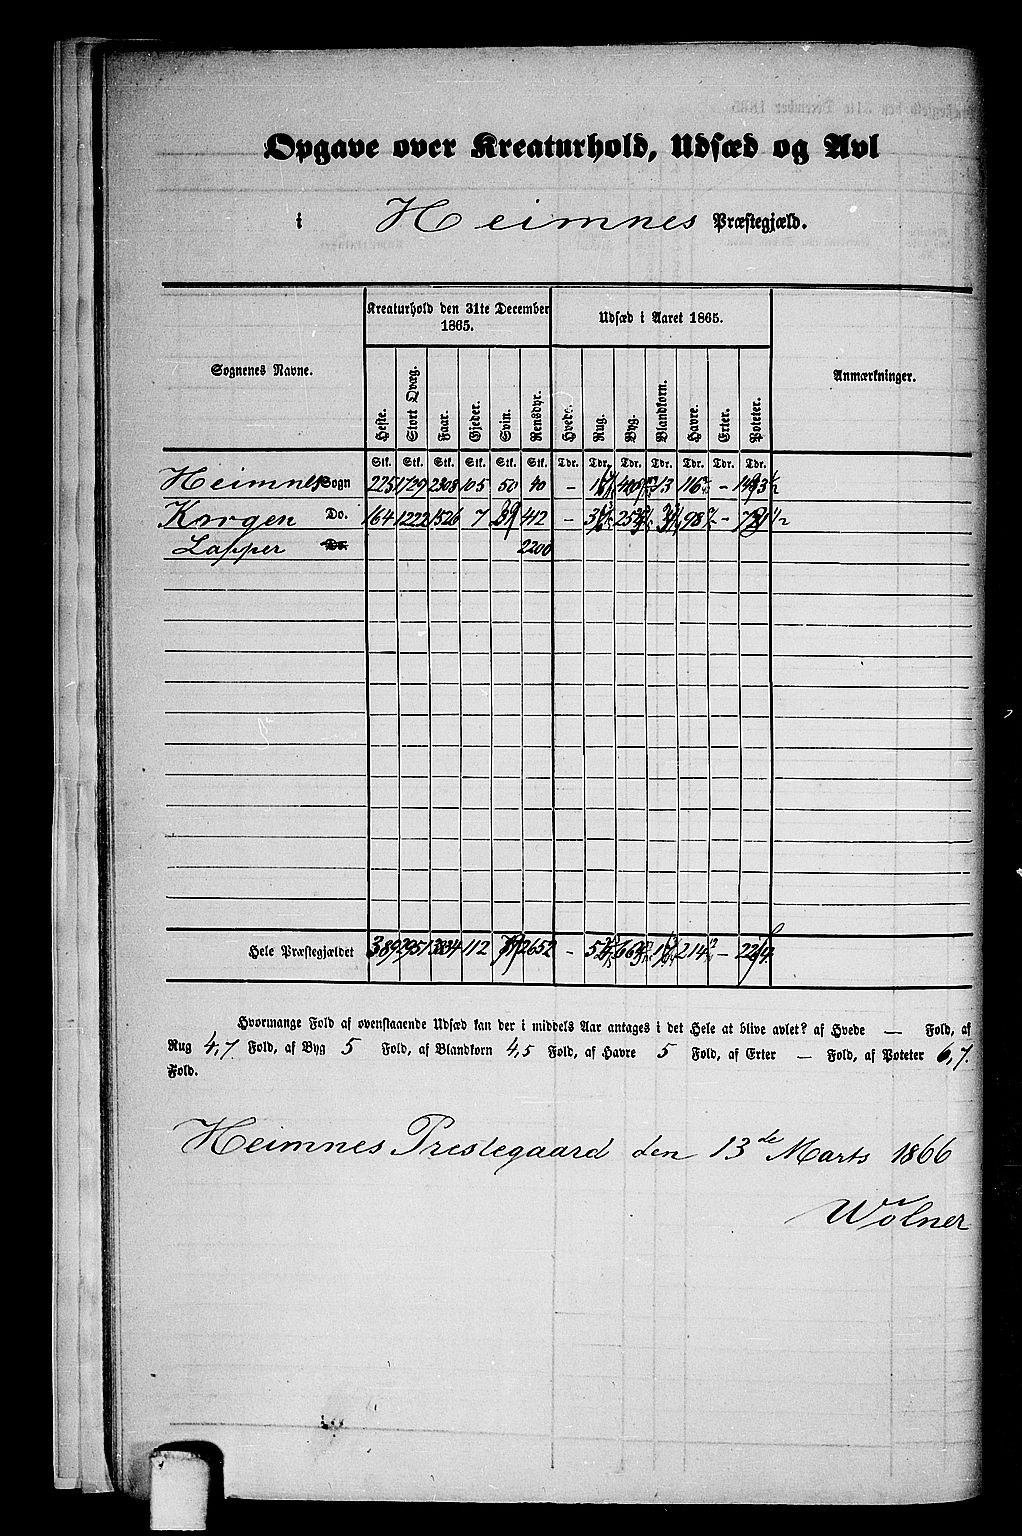 Opgave over Kreaturhold, Udsæd og Avl
i Heimnes Præstegjæld.
Kreaturhold den 31te December 1865. Udsæd i Aaret 1865.
Sognenes Navne. Heste. Stort Qvæg. Faar. Gjeder. Svin. Rensdyr. Hvede. Rug. Byg. Blandkorn. Havre. Erter. Poteter. Anmærkninger.
Stk. Stk. Stk. Stk. Stk. Stk. Tdr. Tdr. Tdr. Tdr. Tdr. Tdr. Tdr.
Heimnes Sogn 225 1729 2308 105 50 40 - 13 116 -
Korgen Do. 164 1222 1526 7 412 - 98 -
Lapper Do. 2200
Hele Præstegjældet 389 2951 3834 112 2652 - 214 -
Hvormange Fold af ovenstaaende Udsæd kan der i middels Aar antages i det Hele at blive avlet? af Hvede — Fold, af
Rug 4,7 Fold, af Byg 5 Fold, af Blandkorn 4,5 Fold, af Havre 5 Fold, af Erter — Fold, af Poteter 6,7.
Fold.
Heimnes Prestegaard den 13de Marts 1866
Wolner